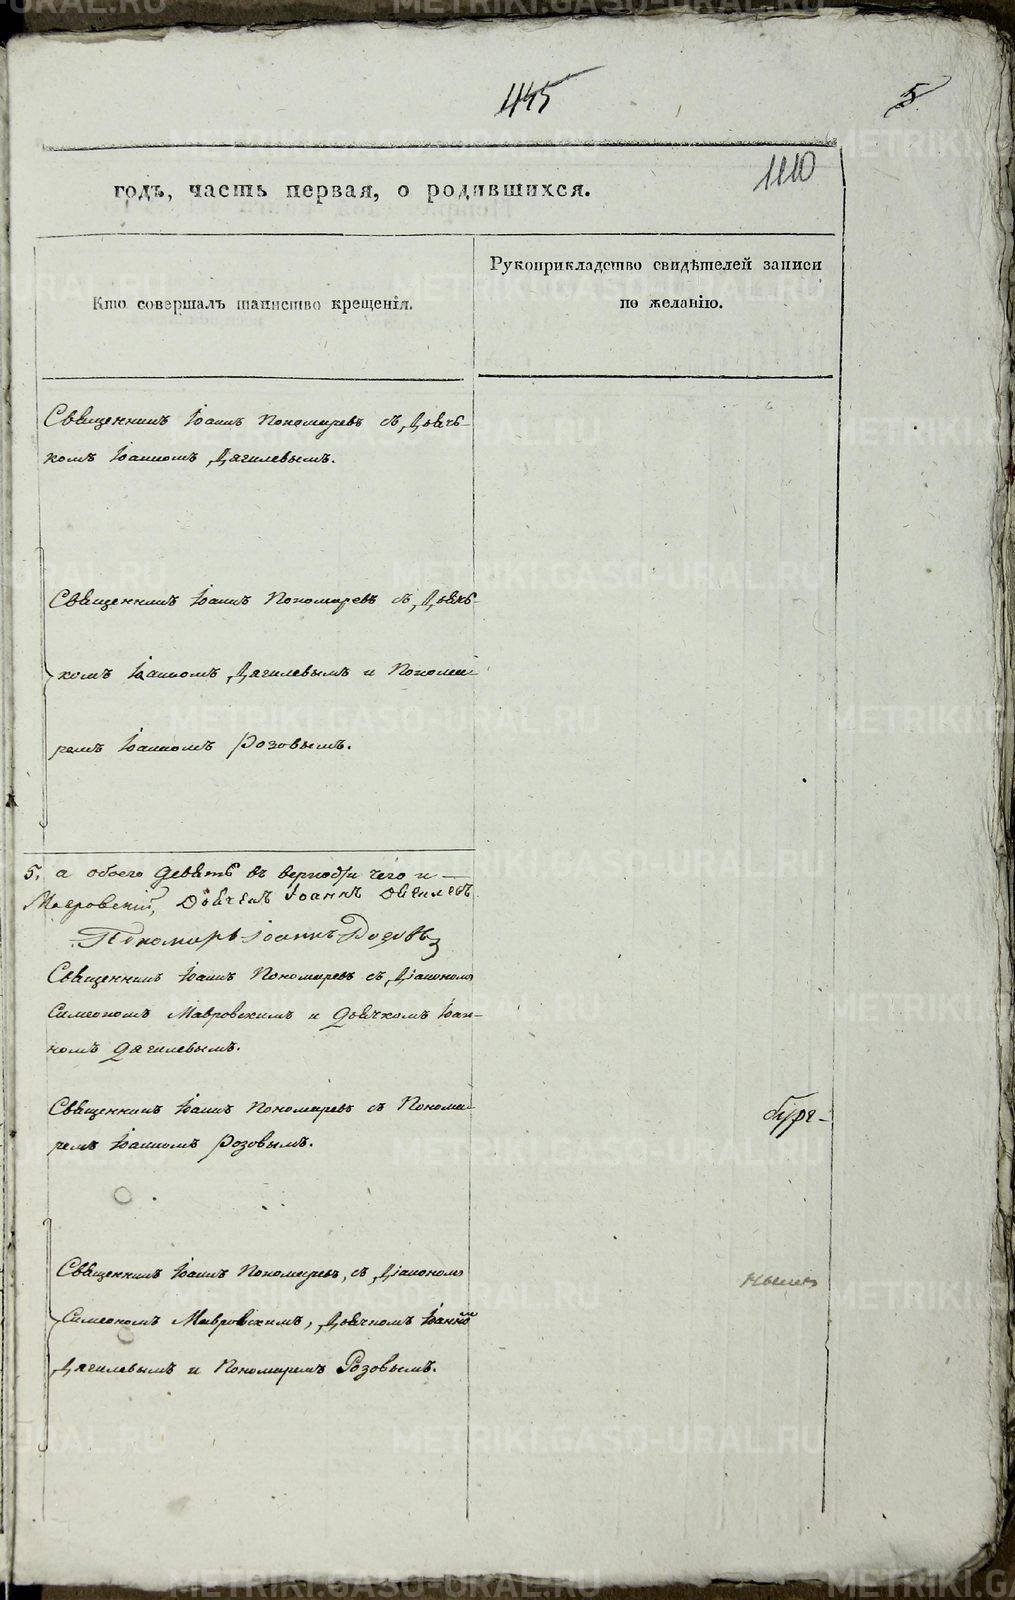 445
5
1110
годъ, часть первая, о родившихся.
Кто совершалъ таинство крещенія.
Рукоприкладство свидѣтелей записи
по желанію.
Священникъ Іоаннъ Пономаревъ съ Дьяч-
комъ Іоанномъ Дягилевымъ.
Священникъ Іоаннъ Пономаревъ съ Дьяч-
комъ Іоанномъ Дягилевымъ и Понома-
ремъ Іоанномъ Розовымъ.
5, а обоего девять въ чего и
Мавровскій, Дьячекъ Іоаннъ
Пономарь Іоаннъ Розовъ
Священникъ Іоаннъ Пономаревъ съ Діакономъ
Симеономъ Мавровскимъ и Дьячкомъ Іоан-
номъ Дягилевымъ.
Священникъ Іоаннъ Пономаревъ съ Понома-
ремъ Іоанномъ Розовымъ.
Священникъ Іоаннъ Пономаревъ, съ Діакономъ
Симеономъ Мавровскимъ, Дьячкомъ Іоанномъ
Дягилевымъ и Пономаремъ Розовымъ.
METRIKI.GASO-URAL.RU